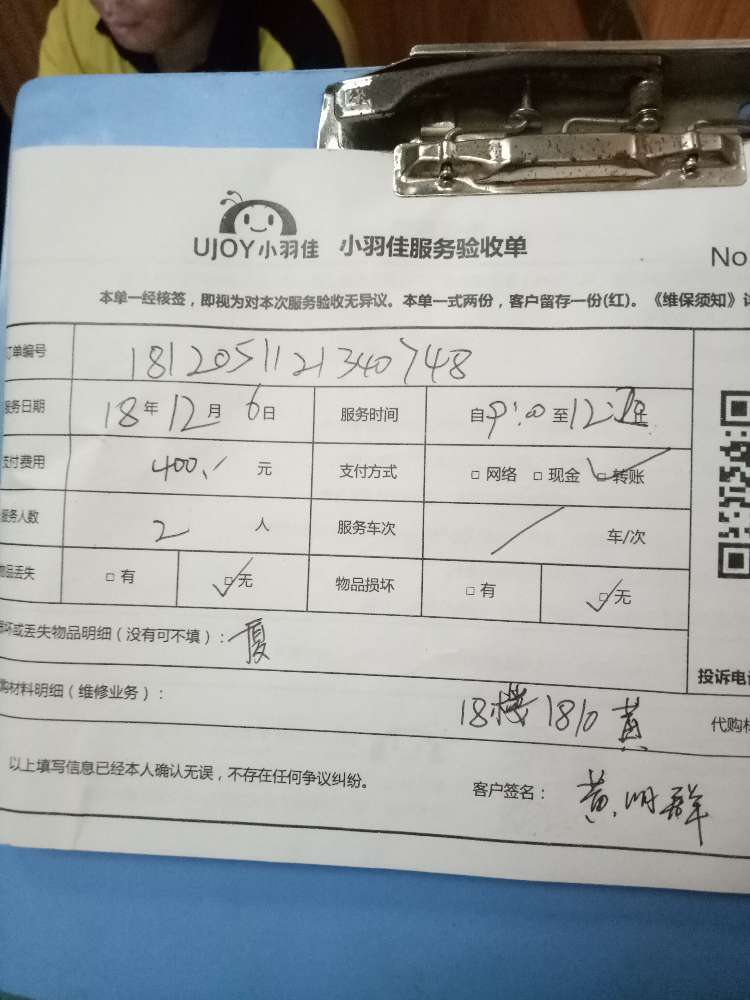 UJOY小羽佳 小羽佳服务验收单
No
本单一经核签，即视为对本次服务验收无异议。本单一式两份，客户留存一份(红)。《维保须知》详
订单编号 1812051121340748
服务日期 18年12月6日 服务时间 自9:00至12:
支付费用 400.- 元 支付方式 □网络 □现金 □转账
服务人数 2 人 服务车次 / 车/次
物品丢失 □有 □无 物品损坏 □有 □无
损坏或丢失物品明细（没有可不填）：厦
投诉电话
代购材料明细（维修业务）：
18楼1810黄 代购材
以上填写信息已经本人确认无误，不存在任何争议纠纷。 客户签名：黄明群